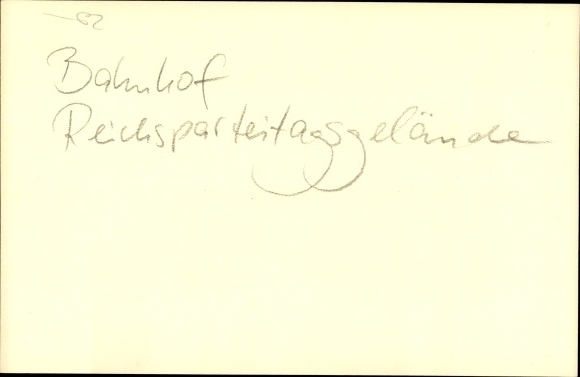 82
Bahnhof
Reichsparteitagsgelände